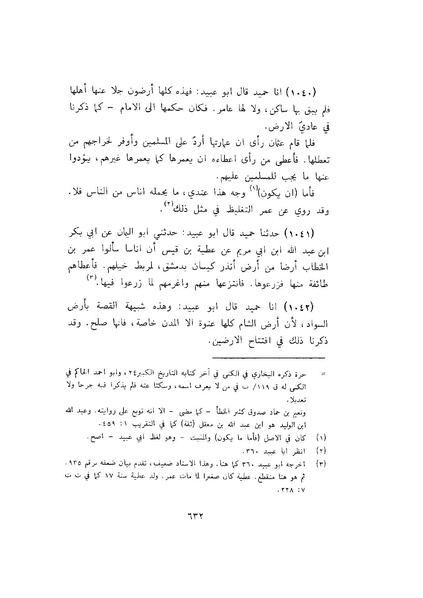 (١٠٤٠) انا حميد قال ابو عبيد: فهذه كلها أرضون جلا عنها أهلها
فلم يبق بها ساكن، ولا لها عامر. فكان حكمها الى الامام - كما ذكرنا
في عاديّ الارض.
فلما قام عثمان رأى ان عمارتها أردّ على المسلمين وأوفر لخراجهم من
تعطلها. فأعطى من رأى اعطاءه ان يعمرها كما يعمرها غيرهم، يؤدوا
عنها ما يجب للمسلمين عليهم.
فأما (ان يكون)(١) وجه هذا عندي، ما يحمله اناس من الناس فلا.
وقد روي عن عمر التغليظ في مثل ذلك(٢).
(١٠٤١) حدثنا حميد قال ابو عبيد: حدثني ابو اليمان عن ابي بكر
ابن عبد الله ابن ابي مريم عن عطية بن قيس أن اناسا سألوا عمر بن
الخطاب أرضا من أرض أندر كيسان بدمشق، لمربط خيلهم. فأعطاهم
طائفة منها فزرعوها. فانتزعها منهم واغرمهم لما زرعوا فيها.(٣)
(١٠٤٢) انا حميد قال ابو عبيد: وهذه شبيهة القصة بأرض
السواد، لأن أرض الشام كلها عنوة الا المدن خاصة، فانها صلح. وقد
ذكرنا ذلك في افتتاح الارضين.
= حرة ذكره البخاري في الكنى في آخر كتابه التاريخ الكبير ٢٤، وابو احمد الحاكم في
الكنى له ق ١١٩/ ب في من لا يعرف اسمه، وسكتا عنه فلم يذكرا فيه جرحا ولا
تعديلا.
ونعيم بن حماد صدوق كثير الخطأ - كما مضى - الا انه توبع على روايته. وعبد الله
ابن الوليد هو ابن عبد الله بن معقل (ثقة) كما في التقريب ١: ٤٥٩.
(١) كان في الاصل (فأما ما يكون) والمثبت - وهو لفظ ابي عبيد - اصح.
(٢) انظر ابا عبيد ٣٦٠.
(٣) أخرجه ابو عبيد ٣٦٠ كما هنا. وهذا الاسناد ضعيف، تقدم بيان ضعفه برقم ٩٣٥.
ثم هو هنا منقطع. عطية كان صغيرا لما مات عمر. ولد عطية سنة ١٧ كما في ت ت
٧: ٢٢٨.
٦٣٢